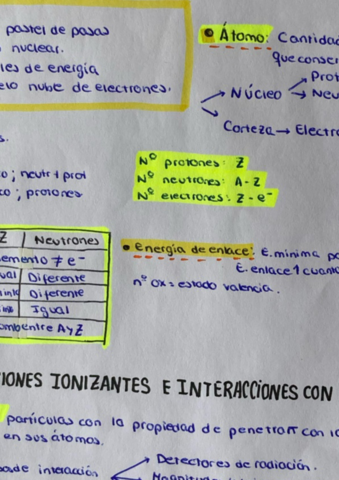 pastel de pasas
nuclear.
les de energía
nube de electrones.
• Átomo: Cantidad
que conser
→ Prot
→ Núcleo → Neu
Corteza → Electr
s.
co; neutr + prot
co; protones
Nº protones: Z
Nº neutrones: A - Z
Nº electrones: Z - e⁻
Z | Neutrones
emento ≠ e⁻
ual | Diferente
| Diferente
| Igual
entre A y Z
• Energía de enlace: E. mínima pa
E. enlace ↑ cuant
nº ox = estado valencia.
IONES IONIZANTES E INTERACCIONES CON
partículas con la propiedad de penetrar con la
en sus átomos.
de interacción → Detectores de radiación.